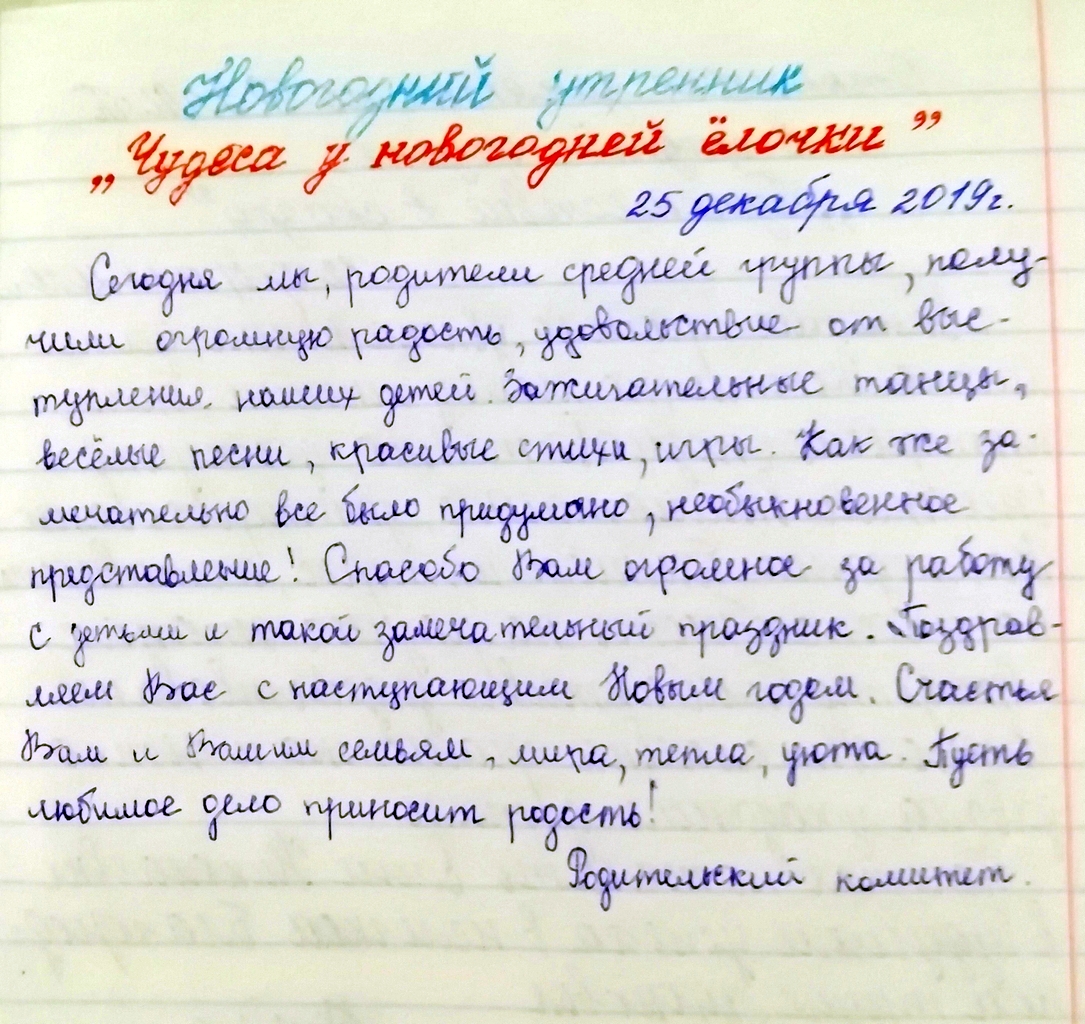 Новогодний утренник
„Чудеса у новогодней ёлочки”
25 декабря 2019г.
Сегодня мы, родители средней группы, полу-
чили огромную радость, удовольствие от выс-
тупления наших детей. Зажигательные танцы,
весёлые песни, красивые стихи, игры. Как же за-
мечательно все было придумано, необыкновенное
представление! Спасибо Вам огромное за работу
с детьми и такой замечательный праздник. Поздрав-
ляем Вас с наступающим Новым годом. Счастья
Вам и Вашим семьям, мира, тепла, уюта. Пусть
любимое дело приносит радость!
Родительский комитет.